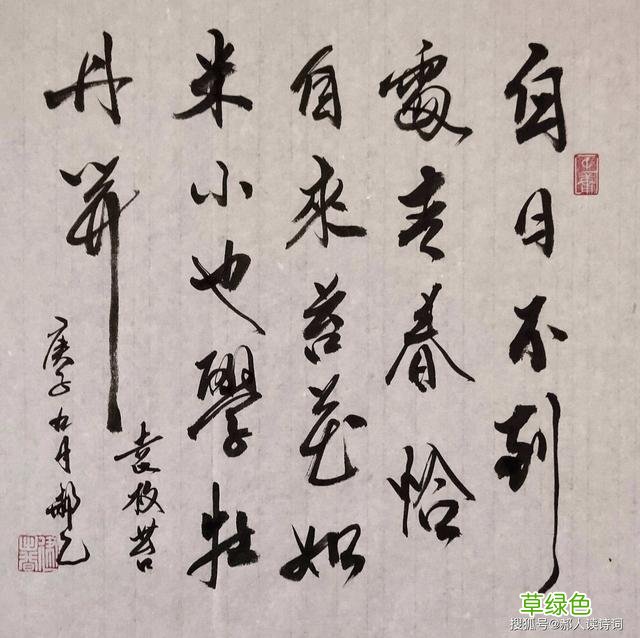 白日不到
處青春恰
自來苔花如
米小也學牡
丹開
袁枚苔
庚子九月郝
草绿色
搜狐号@郝人读诗词